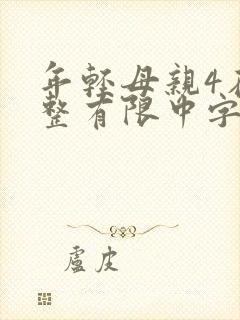 年輕母親4在
整有限中字
盧皮